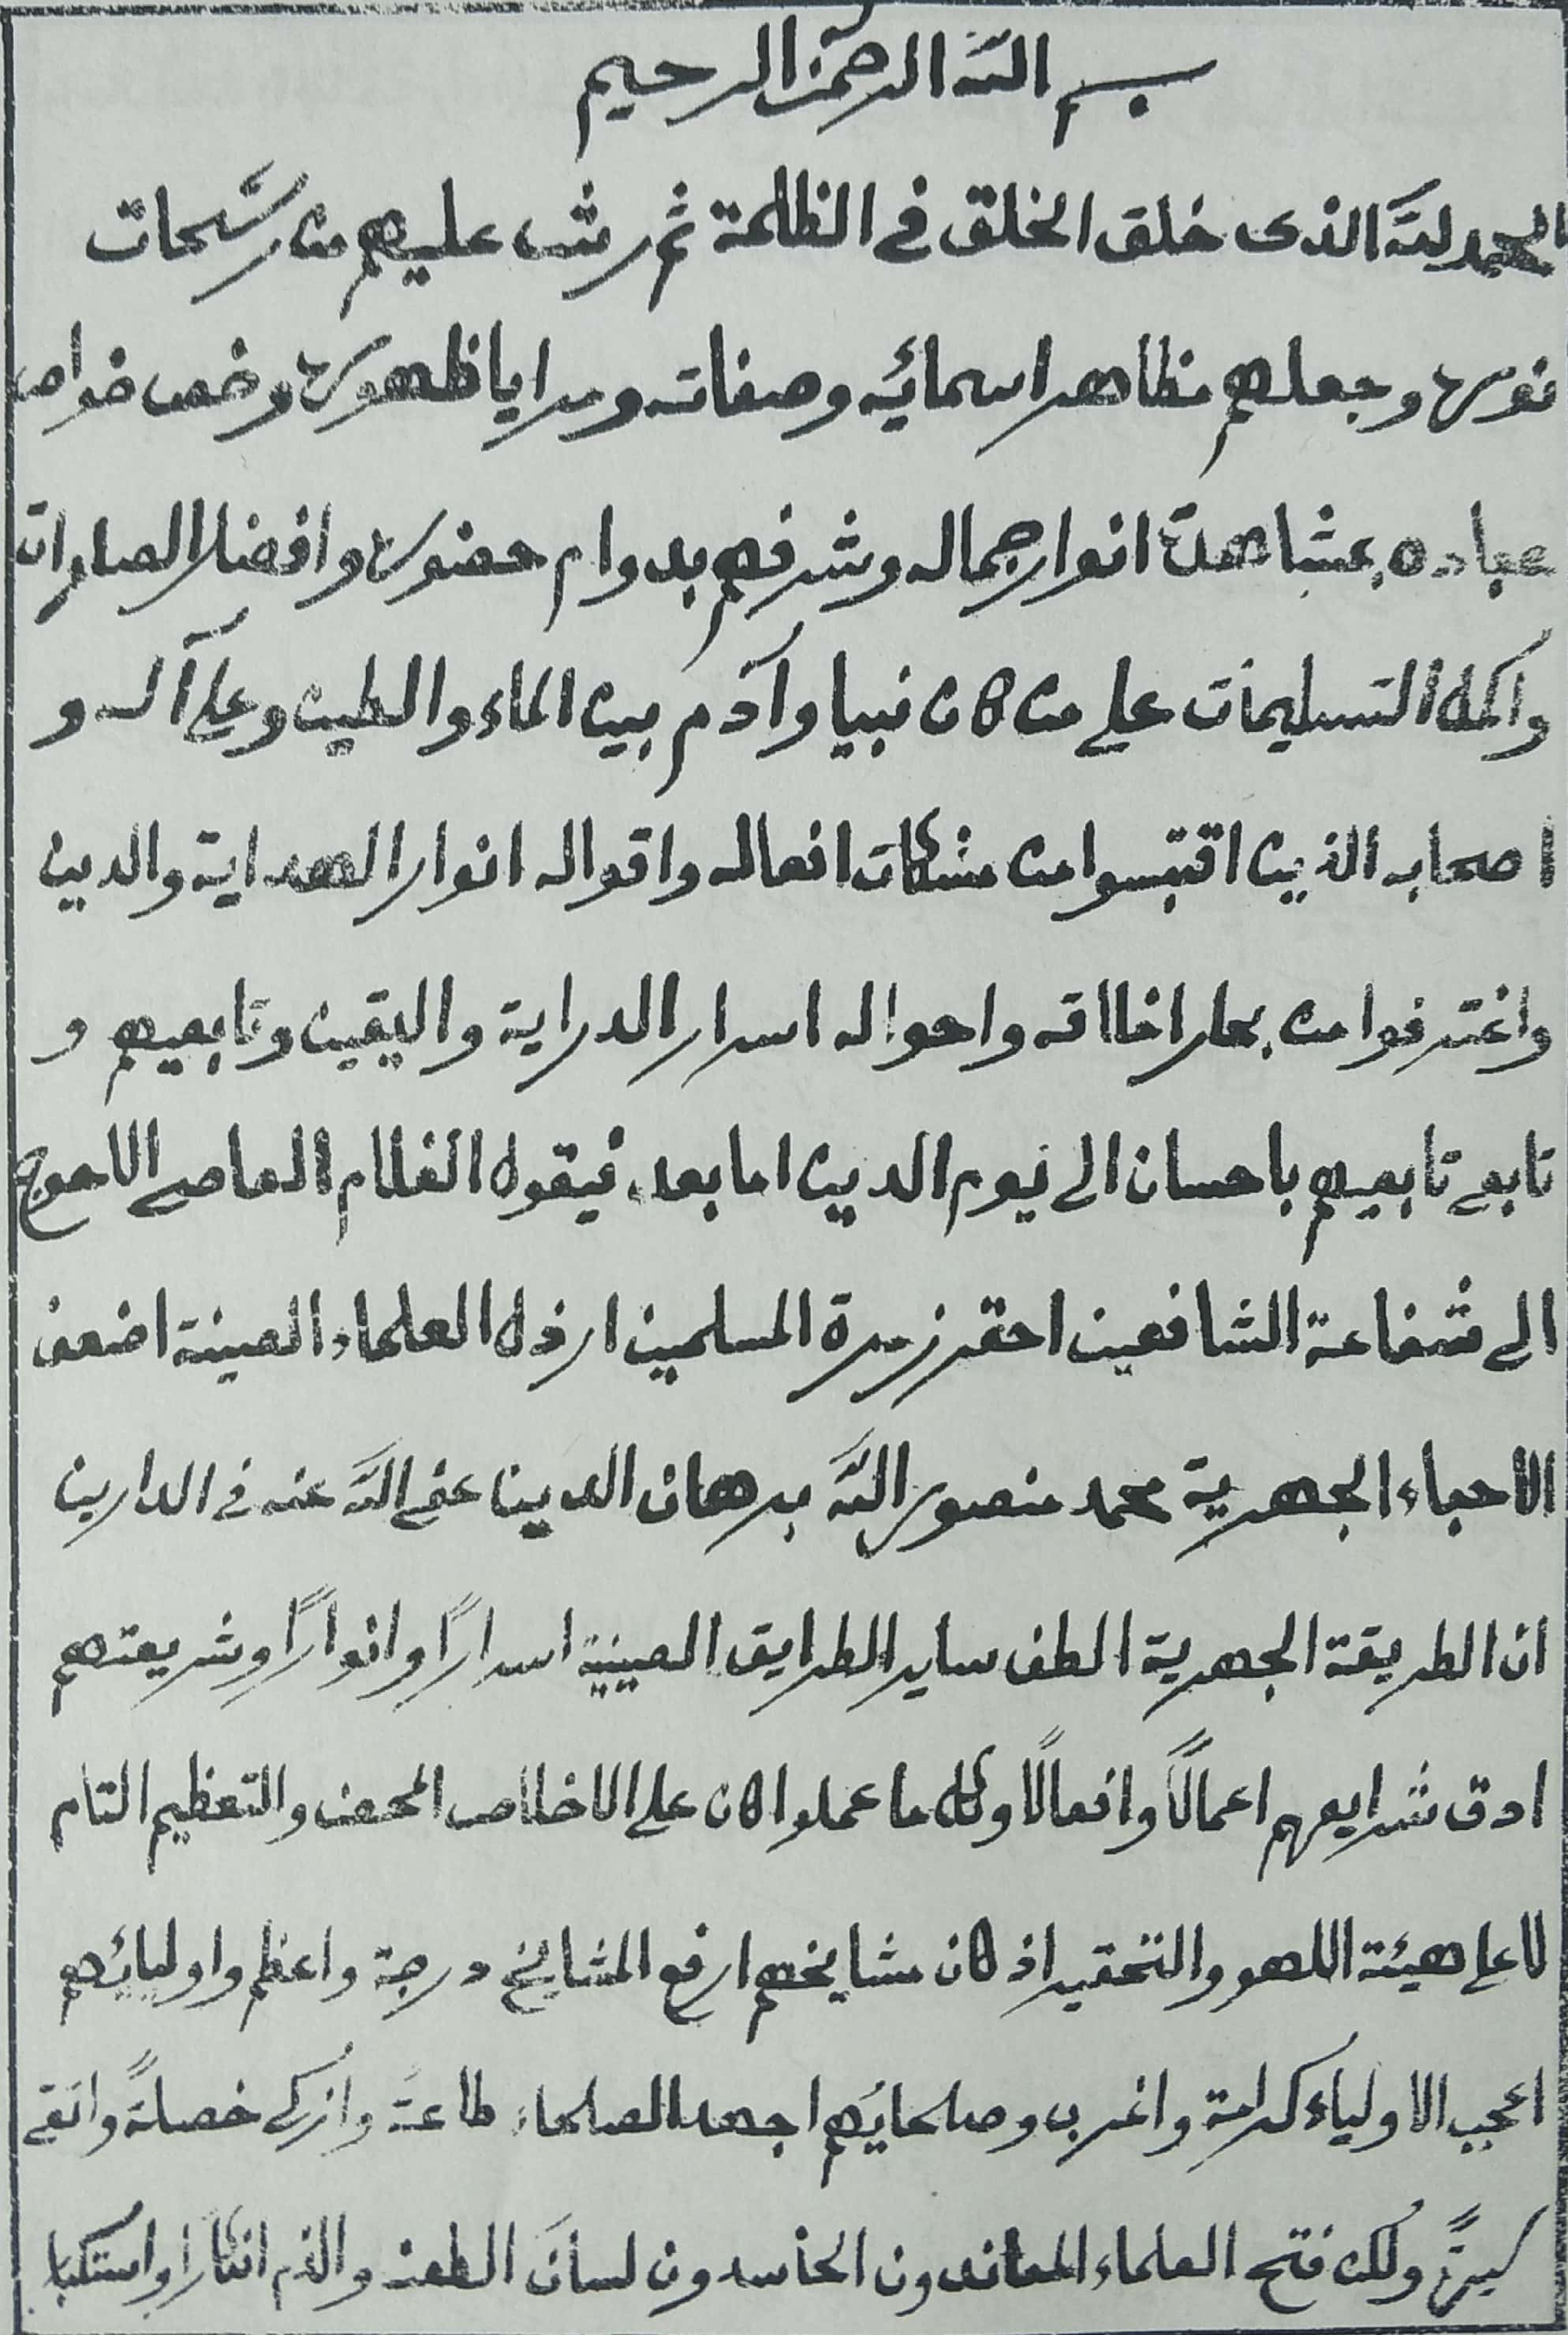 بسم الله الرحمن الرحيم
الحمد لله الذى خلق الخلق فى الظلمة ثم رش عليهم من رشحات
نوره وجعلهم مظاهر اسمائه وصفاته ومرايا ظهوره وخص خواص
عباده بمشاهدة انوار جماله وشرفهم بدوام حضوره وافضل الصلوات
واكمل التسليمات على من كان نبيا وآدم بين الماء والطين وعلى آله و
اصحابه الذين اقتبسوا من مشكات افعاله واقواله انوار الهداية والدين
واغترفوا من بحار اخلاقه واحواله اسرار الدراية واليقين وتابعيهم و
تابعى تابعيهم باحسان الى يوم الدين اما بعد فيقول الغلام العاصى الاحوج
الى شفاعة الشافعين احقر زمرة المسلمين ارذل العلماء الصينية اضعف
الاحباء الجهرية محمد منصور الله برهان الدين عفى الله عنه فى الدارين
ان الطريقة الجهرية الطف ساير الطرايق الصينية اسرارًا وانوارًا وشريعتهم
ادق شرايعهم اعمالًا وافعالًا وكل ما عملوا كان على الاخلاص المحض والتعظيم التام
لا على هيئة اللهو والتحقير اذ كان مشايخهم ارفع المشايخ درجة واعظم واوليائهم
اعجب الاولياء كرامة واغرب وصلحايهم اجهد الصلحاء طاعة وازكى خصلةً واتقى
سيرةً ولكن فتح العلماء المعاندون الحاسدون لسانَ الطعن والذم انكارا واستكبا